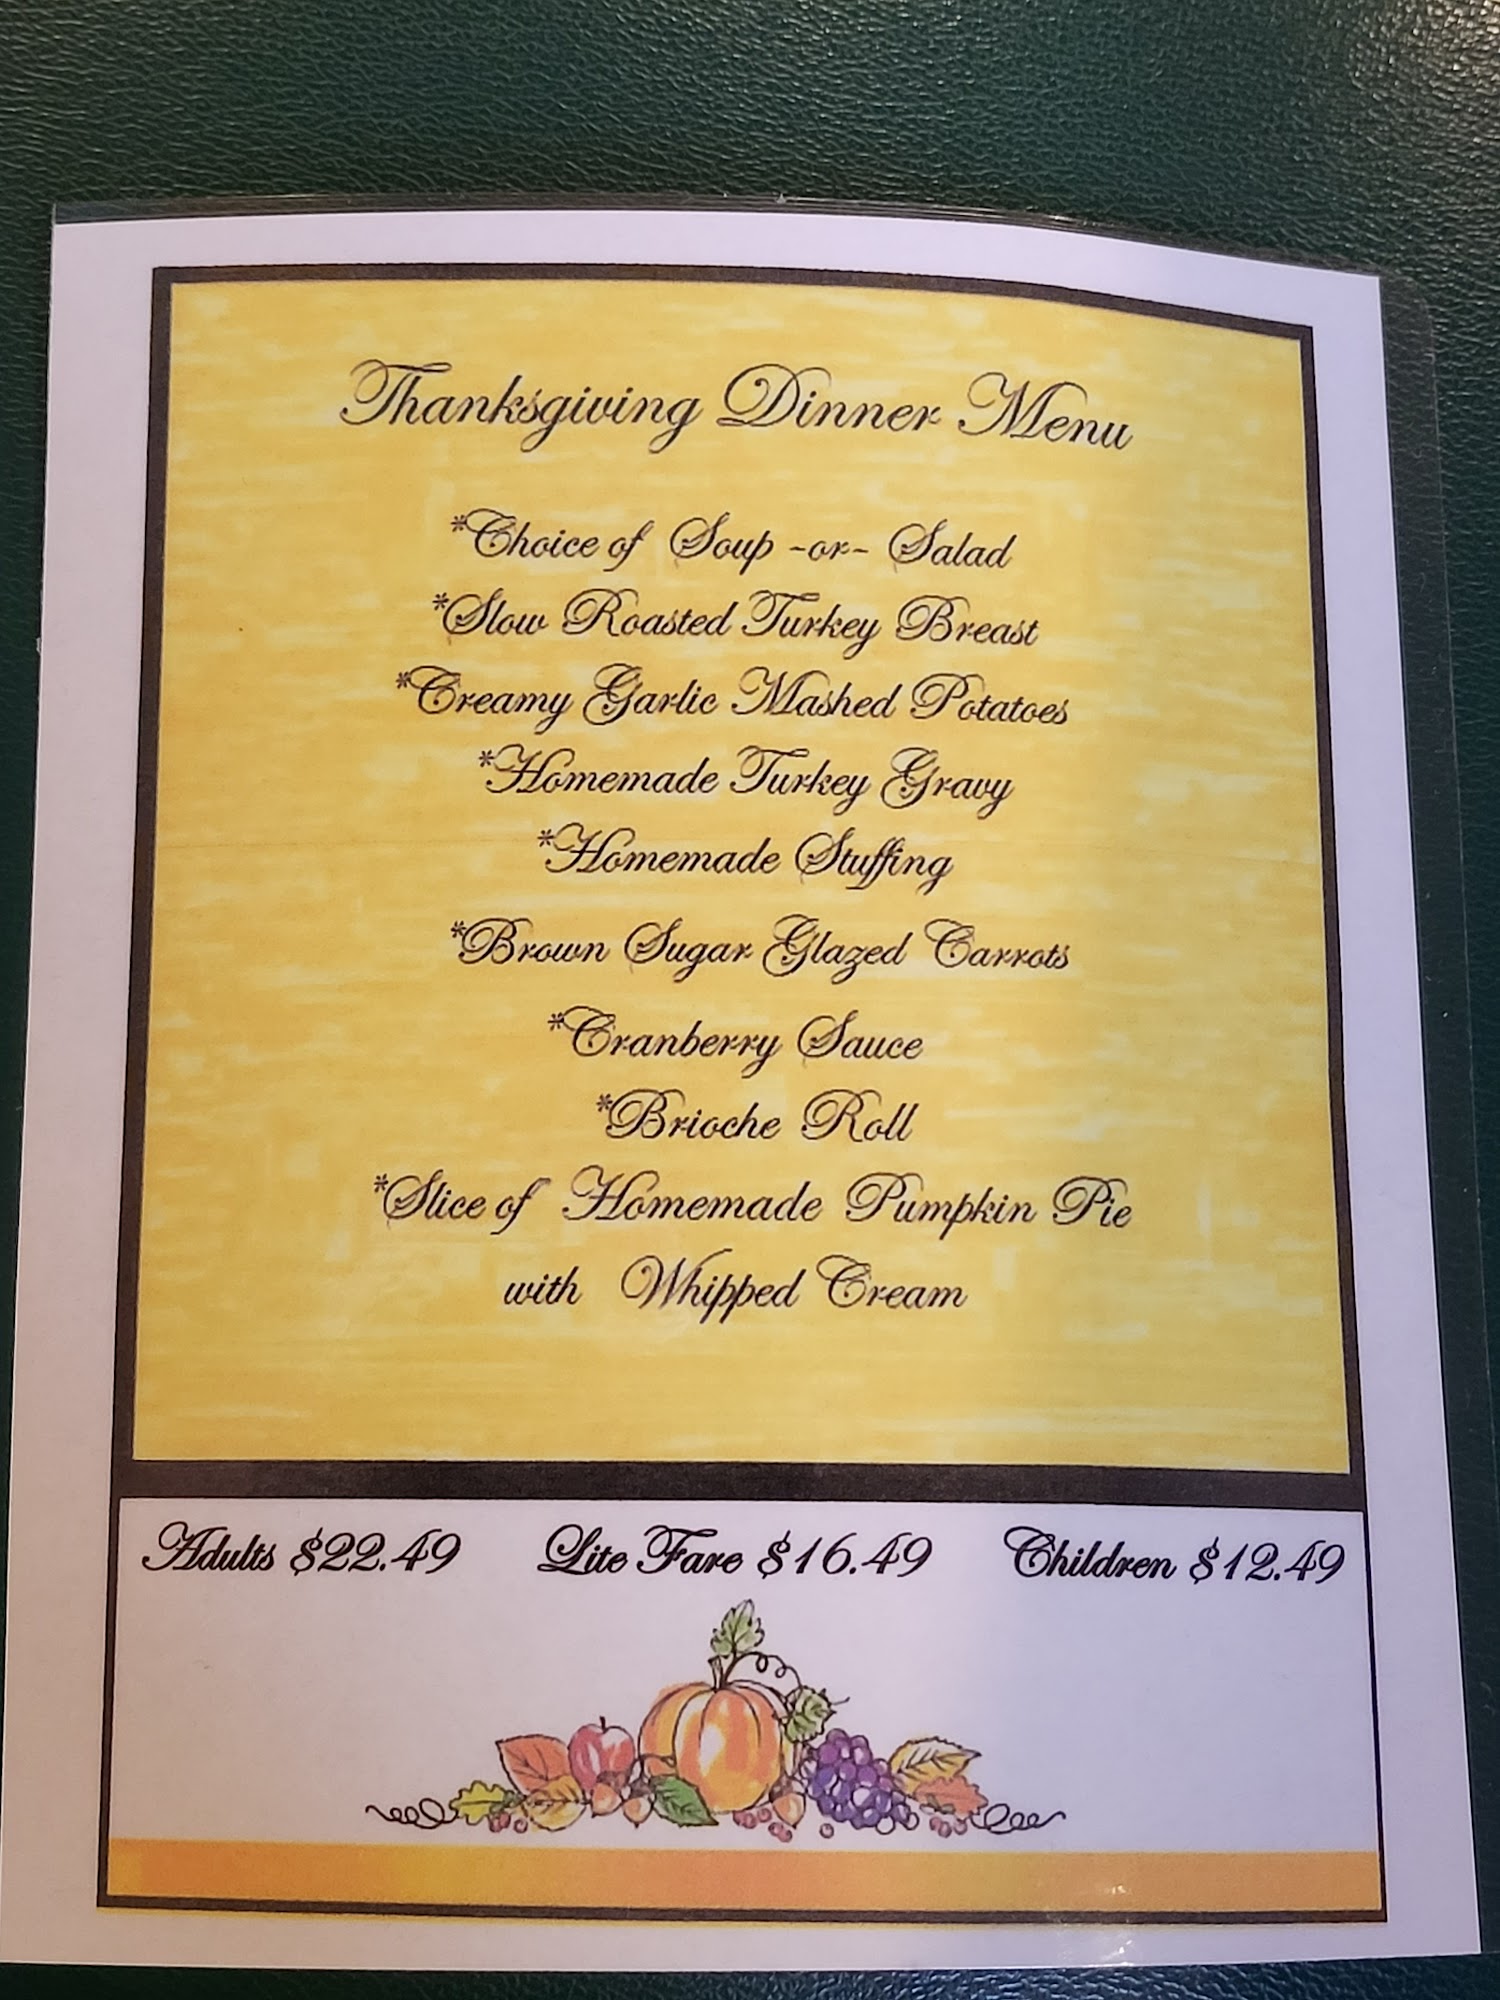 Thanksgiving Dinner Menu
*Choice of Soup -or- Salad
*Slow Roasted Turkey Breast
*Creamy Garlic Mashed Potatoes
*Homemade Turkey Gravy
*Homemade Stuffing
*Brown Sugar Glazed Carrots
*Cranberry Sauce
*Brioche Roll
*Slice of Homemade Pumpkin Pie
with Whipped Cream
Adults $22.49 Lite Fare $16.49 Children $12.49